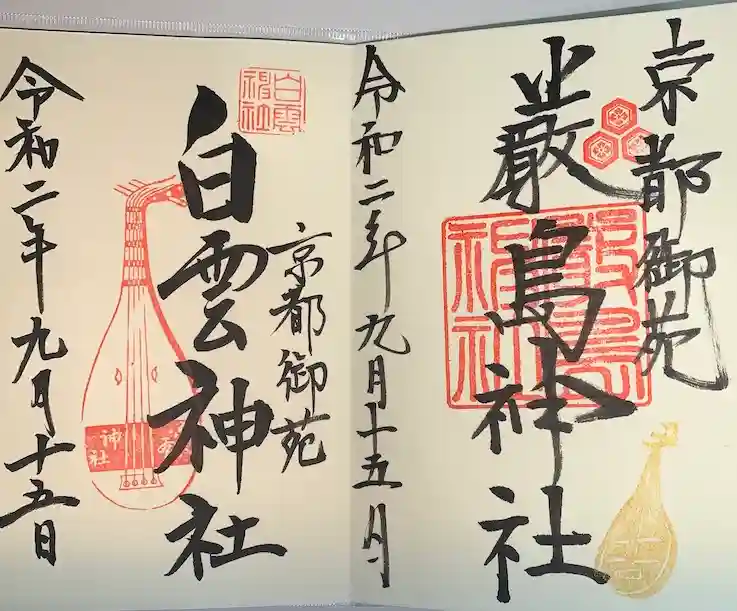 京都御苑
厳島神社
令和二年九月十五日
厳島神社
京都御苑
白雲神社
白雲神社
令和二年九月十五日
神社